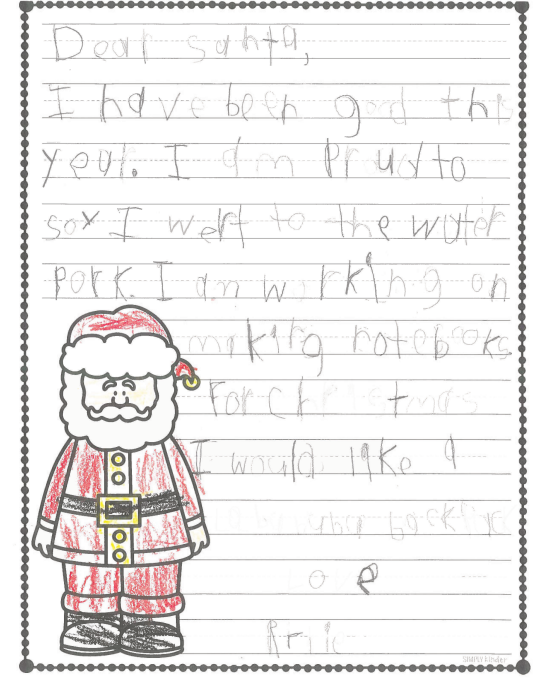 Dear santa,
I have been good this
year. I am Prud to
say I went to the water
park. I am working on
making notebooks
For Christmas
I would like a
backpack
Love
SIMPLY kinder